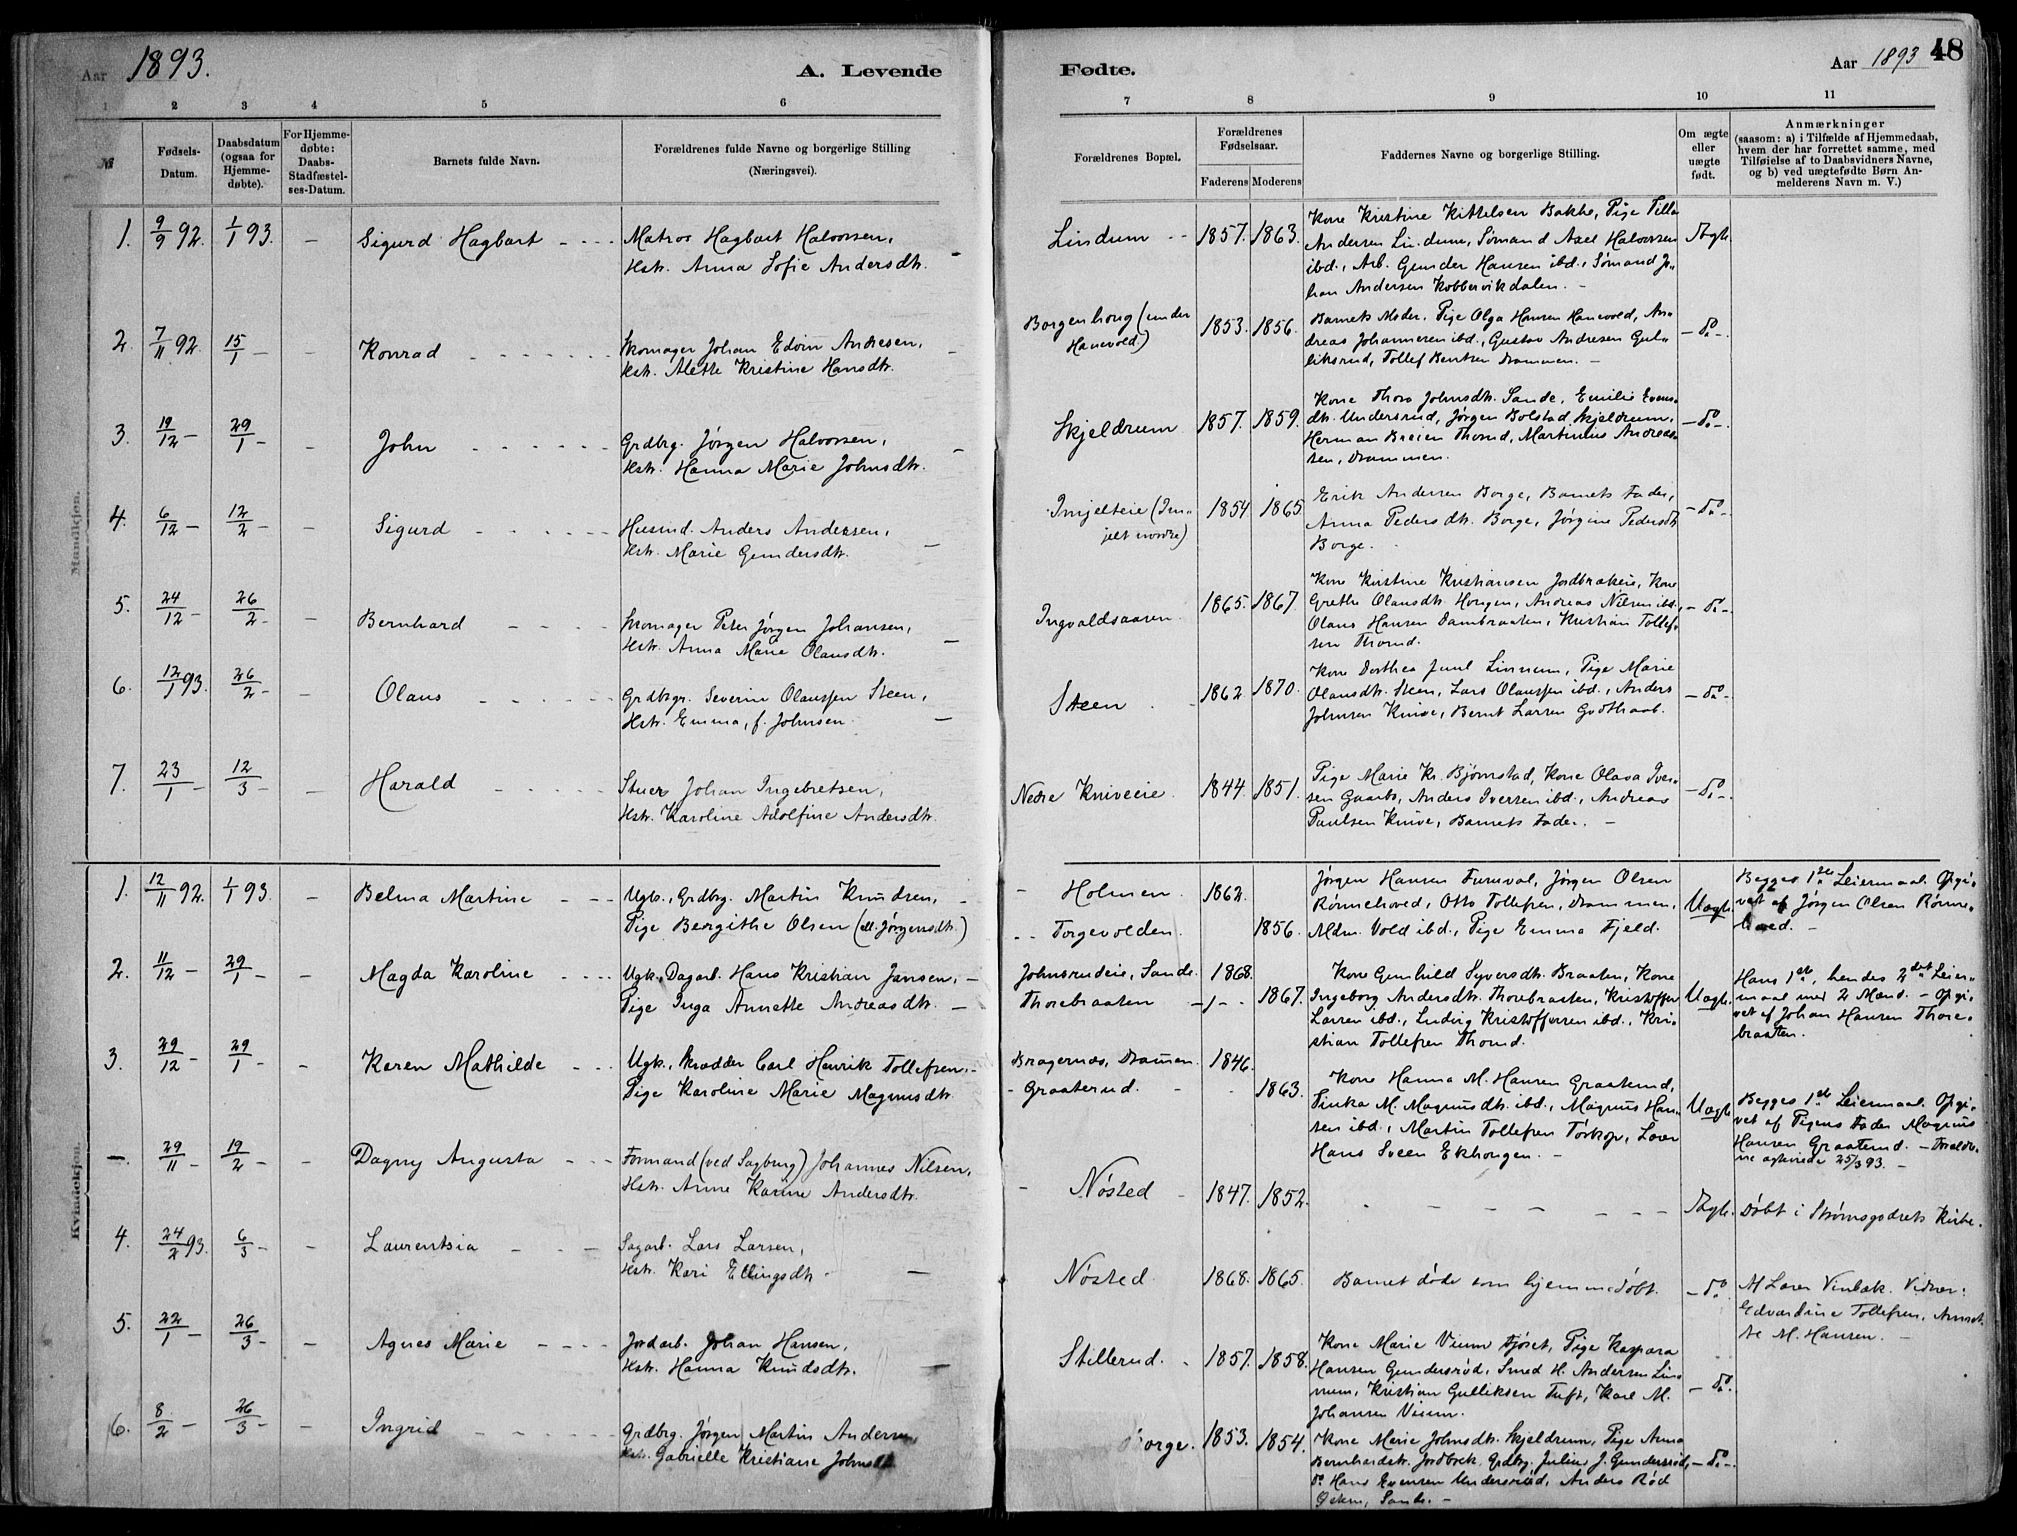 Aar 1893.
A. Levende
Fødte.
Aar 1893
48
1 2 3 4 5 6
7 8 9 10 11
№
Fødsels-
Datum.
Daabsdatum
(ogsaa for
Hjemme-
døbte).
For Hjemme-
døbte:
Daabs-
Stadfæstel-
ses-Datum.
Barnets fulde Navn.
Forældrenes fulde Navne og borgerlige Stilling
(Næringsvei).
Forældrenes Bopæl.
Forældrenes
Fødselsaar.
Faderens Moderens
Faddernes Navne og borgerlige Stilling.
Om ægte
eller
uægte
født.
Anmærkninger
(saasom: a) i Tilfælde af Hjemmedaab,
hvem der har forrettet samme, med
Tilføielse af to Daabsvidners Navne,
og b) ved uægtefødte Børn An-
melderens Navn m. V.)
Mandkjøn.
1. 9/9 92. 1/1 93. - Sigurd Hagbart - - - Matros Hagbart Halvorsen,
Hstr. Anna Sofie Andersdtr. -
Lindum - - 1857. 1863.
Kone Kristine Kittelsen Bakke, Pige Tilla
Andersen Lindum, Sømand Axel Halvorsen
ibd., Arb. Gunder Hansen ibd., Sømand Jo-
han Andersen Kobbervikdalen. -
Ægte.
2. 7/11 92. 15/1 - - Konrad - - - - - - Skomager Johan Edvin Andresen,
Hstr. Alette Kristine Hansdtr. -
Borgenhoug (under
Hanevold) 1853. 1856.
Barnets Moder, Pige Olga Hansen Hanevold, An-
dreas Johannesen ibd., Gustav Andresen Gul-
liksrud, Tollef Bentsen Drammen. -
- do -
3. 19/12 - 29/1 - - John - - - - - - Grdbrg. Jørgen Halvorsen,
Hstr. Hanna Marie Johnsdtr. -
Skjeldrum 1857. 1859.
Kone Thora Johnsdtr. Sande, Emilie Evens-
dtr. Undersrud, Jørgen Bolstad Skjeldrum,
Herman Breien Thorud, Martinius Andreas-
sen, Drammen.
- do -
4. 6/12 - 12/2 - - Sigurd - - - - - Husmd. Anders Andersen,
Hstr. Marie Gundersdtr. -
Imjelteie (Im-
jelt nordre) 1854 1865
Erik Andersen Borge, Barnets Fader,
Anna Pedersdtr. Borge, Jørgine Pedersdtr
Borge.
- do -
5. 24/12 - 26/2 - - Bernhard - - - - Skomager Peter Jørgen Johansen,
Hstr. Anna Marie Olausdtr. -
Ingvaldsaasen. 1865. 1867.
Kone Kirstine Kristiansen Jordbrækeie, Kone
Grethe Olausdtr. Hougen, Andreas Nilsen ibd.,
Olaus Hansen Dambraaten, Kristian Tollef-
sen Thorud.
- do -
6. 12/1 93. 26/2 - - Olaus - - - - - Grdbgr. Severin Olaussen Steen,
Hstr. Emma, f. Johnsen. -
Steen. - 1862. 1870.
Kone Dorthea Juul Linnum, Pige Marie
Olausdtr. Steen, Lars Olaussen ibd., Anders
Johnsen Knive, Bernt Larsen Godthaab.
- do -
7. 23/1 - 12/3 - - Harald - - - - - Stuer Johan Ingebretsen,
Hstr. Karoline Adolfine Andersdtr.
Nedre Kniveeie. 1844. 1851.
Pige Marie Kr. Bjørnstad, Kone Olava Iver-
sen Gaarbo, Anders Iversen ibd., Andreas
Paulsen Knive, Barnets Fader. -
- do -
Kvindekjøn.
1. 12/11 92. 1/1 93. - Belma Martine - - - Ugk., Grdbrg. Martin Knudsen, -
Pige Bergithe Olsen (ell. Jørgensdtr.)
- Holmen. 1862.
- - Torgevolden. 1856.
Jørgen Hansen Furuvol, Jørgen Olsen
Rønnehoved, Otto Tollefsen, Drammen,
Mdm. Vold ibd., Pige Emma Fjeld.
Uægte.
Begges 1ste Leiermaal. Opgi-
vet af Jørgen Olsen Rønne-
hoved. -
2. 11/12 - 29/1 - - Magda Karoline - - - - Ugk. Dagarb. Hans Kristian Jansen, -
Pige Inga Annette Andreasdtr. -
Johnsrudeie, Sande. 1868.
Thorebraaten 1867.
Kone Gunhild Syversdtr. Braaten, Kone
Ingeborg Andersdtr. Thorebraaten, Kristoffer
Larsen ibd., Ludvig Kristoffersen ibd., Kri-
stian Tollefsen Thorud.
Uægte.
Hans 1ste, hendes 2det Leier-
maal med 2 Mænd. - Opgi-
vet af Johan Hansen Thore-
braaten.
3. 29/12 - 29/1 - - Karen Mathilde - - - Ugk., Skrædder Carl Henrik Tollefsen, -
Pige Karoline Marie Magnusdtr.
Bragernæs, Drammen. 1846.
- Graaterud. - 1863.
Kone Hanna M. Hansen Graaterud,
Tinka M. Magnusdtr. ibd., Magnus Han-
sen ibd., Martin Tollefsen Torkop,
Hans Sveen Ekhougen. -
Uægte
Begges 1ste Leiermaal. Opgi-
vet af Pigens Fader Magnus
Hansen Graaterud. - Foreldre-
ne ægteviede 25/3 93. -
- 29/11 - 19/2 - - Dagny Augusta - - - Formand (ved Sagbrug) Johannes Nilsen,
Hstr. Anne Karine Andersdtr.
- Nøsted - 1847. 1852. - - - - - - Ægte. Døbt i Strømsgodsets Kirke.
4. 24/2 93. 6/3 - - Laurentsia - - - Sagarb. Lars Larsen,
Hstr. Kari Ellingsdtr. -
Nøsted. 1868. 1865. Barnet døde som hjemmedøbt. - do
Af Vinbæk. Vidner:
Edvardine Tollefsen, Annet-
te M. Hansen. -
5. 22/1 - 26/3 - - Agnes Marie - - - - Jordarb. Johan Hansen,
Hstr. Hanna Knudsdtr. -
Stillerud. - 1857. 1858.
Kone Marie Vium Fjøset, Pige Kaspara
Hansen Gundersrød, Smed H. Andersen Lin-
num, Kristian Gulliksen Tuft, Karl M.
Johansen Vium.
- do -
6. 8/2 - 26/3 - - Ingrid - - - - - - Grdbrg. Jørgen Martin Andersen,
Hstr. Gabrielle Kristiane Johnsdtr
Borge. 1853. 1854.
Kone Marie Johnsdtr. Skjeldrum, Pige Anna
Bernhardstr. Jordbræk, Grdbrg. Julius J. Gundersrød,
do Hans Evensen Undersrud, Anders Rød
Sande. -
- do -